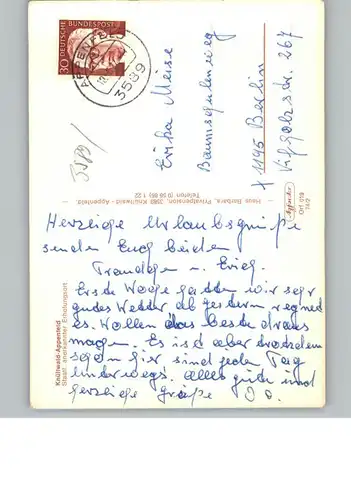 DEUTSCHE BUNDESPOST
30
APPENFELD
3589
3589/
Erika Meise
Baumschulenweg
+ 1195 Berlin
267
Haus Barbara, Privatpension, 3589 Knüllwald-Appenfeld
Telefon (0 59 85) 1 22
Knüllwald-Appenfeld
Staatl. anerkannter Erholungsort
Herzliche Urlaubsgrüße
senden Euch beiden
Trandchen u. Erich.
Erste Woche hatten wir sehr
gutes Wetter ab gestern regnet
es. Wollen das beste draus
machen. Es ist aber trotzdem
schön hir sind jeden Tag
unterwegs. Alles gute und
herzliche Grüße D.O.